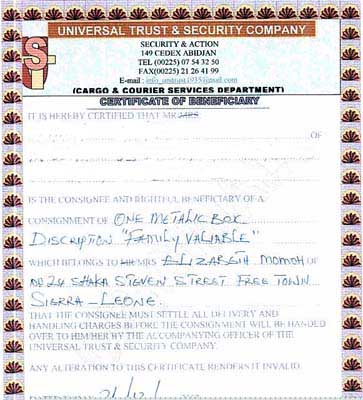 UNIVERSAL TRUST & SECURITY COMPANY
SECURITY & ACTION
149 CEDEX ABIDJAN
TEL (00225) 07 54 32 50
FAX(00225) 21 26 41 99
E-mail : info_amtrust1935@mail.com
(CARGO & COURIER SERVICES DEPARTMENT)
CERTIFICATE OF BENEFICIARY
IT IS HEREBY CERTIFIED THAT MR/MRS
OF
IS THE CONSIGNEE AND RIGHTFUL BENEFICIARY OF A
CONSIGNMENT OF ONE METALIC BOX
DISCRIPTION "FAMILY VALIABLE"
WHICH BELONGS TO MR MRS ELIZABETH MOMOH OF
NO 24 SHAKA STEVEN STREET FREE TOWN
SIERRA-LEONE.
THAT THE CONSIGNEE MUST SETTLE ALL DELIVERY AND
HANDLING CHARGES BEFORE THE CONSIGNMENT WILL BE HANDED
OVER TO HIM/HER BY THE ACCOMPANYING OFFICER OF THE
UNIVERSAL TRUST & SECURITY COMPANY.
ANY ALTERATION TO THIS CERTIFICATE RENDERS IT INVALID.